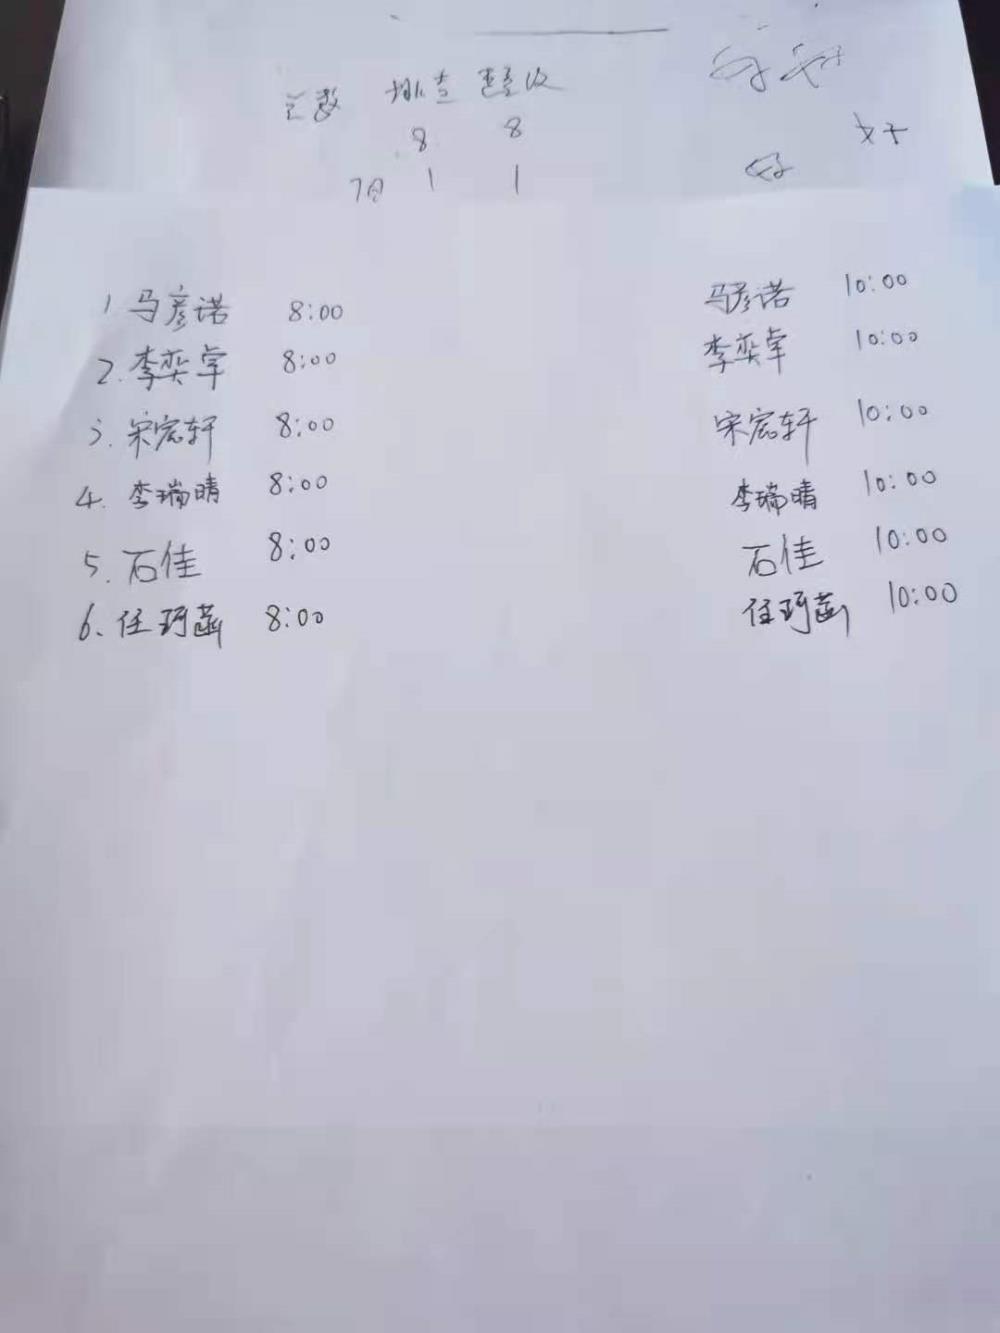 总数 排查 整改
8 8
7月 1 1
好
好
1 马彦诺 8:00 马彦诺 10:00
2. 李奕卓 8:00 李奕卓 10:00
3. 宋宏轩 8:00 宋宏轩 10:00
4. 李瑞晴 8:00 李瑞晴 10:00
5. 石佳 8:00 石佳 10:00
6. 任珂菡 8:00 任珂菡 10:00